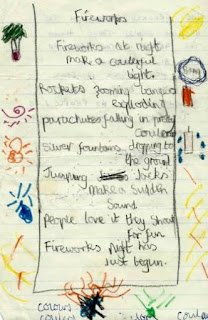 Fireworks
Fireworks at night
make a coulerful
light.
Rockets zooming bangers
exploading
parachutes falling in pretty
coulers
Silver fountains dropping to
the ground
Jumping Jacks
Make a sudden
Sound
People love it they shout
for fun
Fireworks night has
just begun.
colours